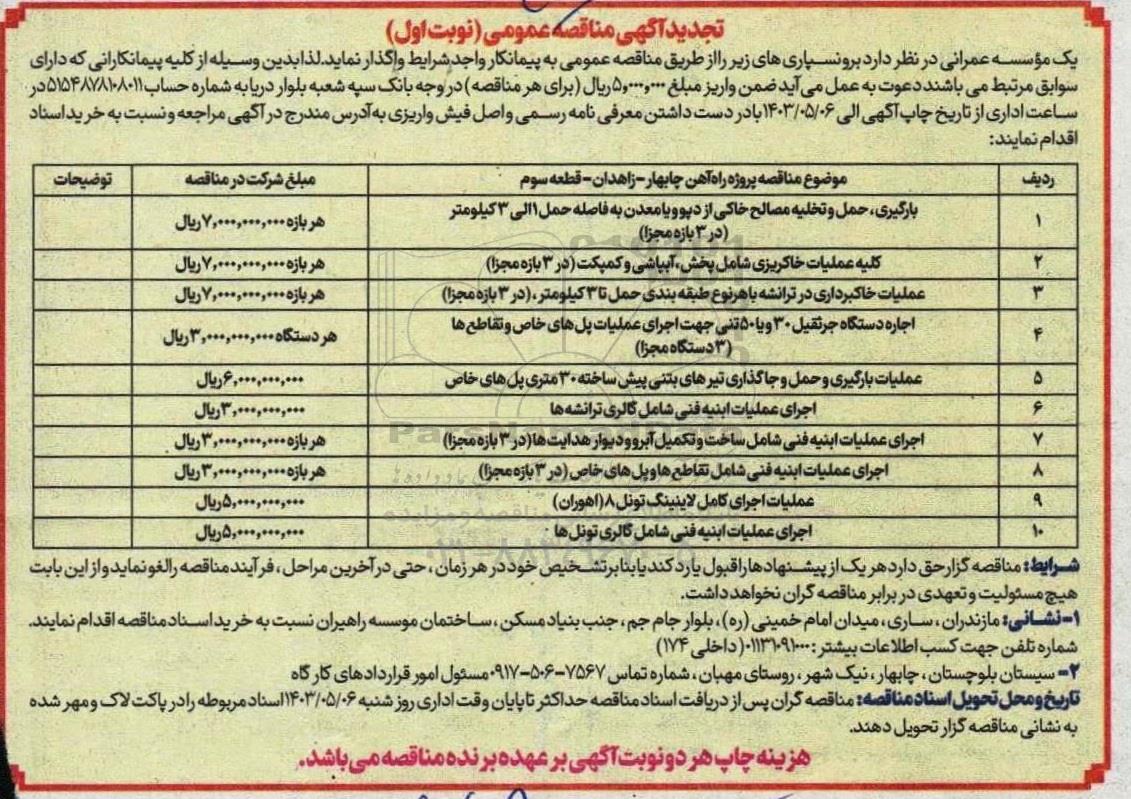 تجدید آگهی مناقصه عمومی (نوبت اول)
یک مؤسسه عمرانی در نظر دارد برونسپاری های زیر را از طریق مناقصه عمومی به پیمانکار واجد شرایط واگذار نماید. لذا بدین وسیله از کلیه پیمانکارانی که دارای
سوابق مرتبط می باشند دعوت به عمل می آید ضمن واریز مبلغ ۵,۰۰۰,۰۰۰ ریال (برای هر مناقصه) در وجه بانک سپه شعبه بلوار دریا به شماره حساب ۵۱۵۴۸۷۸۱۰۸۰۱۱ در
ساعت اداری از تاریخ چاپ آگهی الی ۱۴۰۳/۰۵/۰۶ با در دست داشتن معرفی نامه رسمی و اصل فیش واریزی به آدرس مندرج در آگهی مراجعه و نسبت به خرید اسناد
اقدام نمایند:
ردیف موضوع مناقصه پروژه راه آهن چابهار - زاهدان - قطعه سوم مبلغ شرکت در مناقصه توضیحات
۱ بارگیری، حمل و تخلیه مصالح خاکی از دپو و یا معدن به فاصله حمل ۱ الی ۳ کیلومتر
(در ۳ بازه مجزا) هر بازه ۷,۰۰۰,۰۰۰,۰۰۰ ریال
۲ کلیه عملیات خاکریزی شامل پخش، آبپاشی و کمپکت (در ۳ بازه مجزا) هر بازه ۷,۰۰۰,۰۰۰,۰۰۰ ریال
۳ عملیات خاکبرداری در ترانشه با هر نوع طبقه بندی حمل تا ۳ کیلومتر، (در ۳ بازه مجزا) هر بازه ۷,۰۰۰,۰۰۰,۰۰۰ ریال
۴ اجاره دستگاه جرثقیل ۳۰ و یا ۵۰ تنی جهت اجرای عملیات پل های خاص و تقاطع ها
(۳ دستگاه مجزا) هر دستگاه ۳,۰۰۰,۰۰۰,۰۰۰ ریال
۵ عملیات بارگیری و حمل و جاگذاری تیر های بتنی پیش ساخته ۳۰ متری پل های خاص ۶,۰۰۰,۰۰۰,۰۰۰ ریال
۶ اجرای عملیات ابنیه فنی شامل گالری ترانشه ها ۳,۰۰۰,۰۰۰,۰۰۰ ریال
۷ اجرای عملیات ابنیه فنی شامل ساخت و تکمیل آبرو و دیوار هدایت ها (در ۳ بازه مجزا) هر بازه ۳,۰۰۰,۰۰۰,۰۰۰ ریال
۸ اجرای عملیات ابنیه فنی شامل تقاطع ها و پل های خاص (در ۳ بازه مجزا) هر بازه ۳,۰۰۰,۰۰۰,۰۰۰ ریال
۹ عملیات اجرای کامل لاینینگ تونل ۸ (اهوران) ۵,۰۰۰,۰۰۰,۰۰۰ ریال
۱۰ اجرای عملیات ابنیه فنی شامل گالری تونل ها ۵,۰۰۰,۰۰۰,۰۰۰ ریال
ParsNamadData
شرایط: مناقصه گزار حق دارد هر یک از پیشنهادها را قبول یا رد کند یا بنابر تشخیص خود در هر زمان، حتی در آخرین مراحل، فرآیند مناقصه را لغو نماید و از این بابت
هیچ مسئولیت و تعهدی در برابر مناقصه گران نخواهد داشت.
۱- نشانی: مازندران، ساری، میدان امام خمینی (ره)، بلوار جام جم، جنب بنیاد مسکن، ساختمان موسسه راهیران نسبت به خرید اسناد مناقصه اقدام نمایند.
شماره تلفن جهت کسب اطلاعات بیشتر: ۰۱۱۳۱۰۹۱۰۰۰ (داخلی ۱۷۴)
۲- سیستان بلوچستان، چابهار، نیک شهر، روستای مهبان، شماره تماس ۷۵۶۷-۵۰۶-۰۹۱۷ مسئول امور قراردادهای کارگاه
تاریخ و محل تحویل اسناد مناقصه: مناقصه گران پس از دریافت اسناد مناقصه حداکثر تا پایان وقت اداری روز شنبه ۱۴۰۳/۰۵/۰۶ اسناد مربوطه را در پاکت لاک و مهر شده
به نشانی مناقصه گزار تحویل دهند.
هزینه چاپ هر دو نوبت آگهی بر عهده برنده مناقصه می باشد.